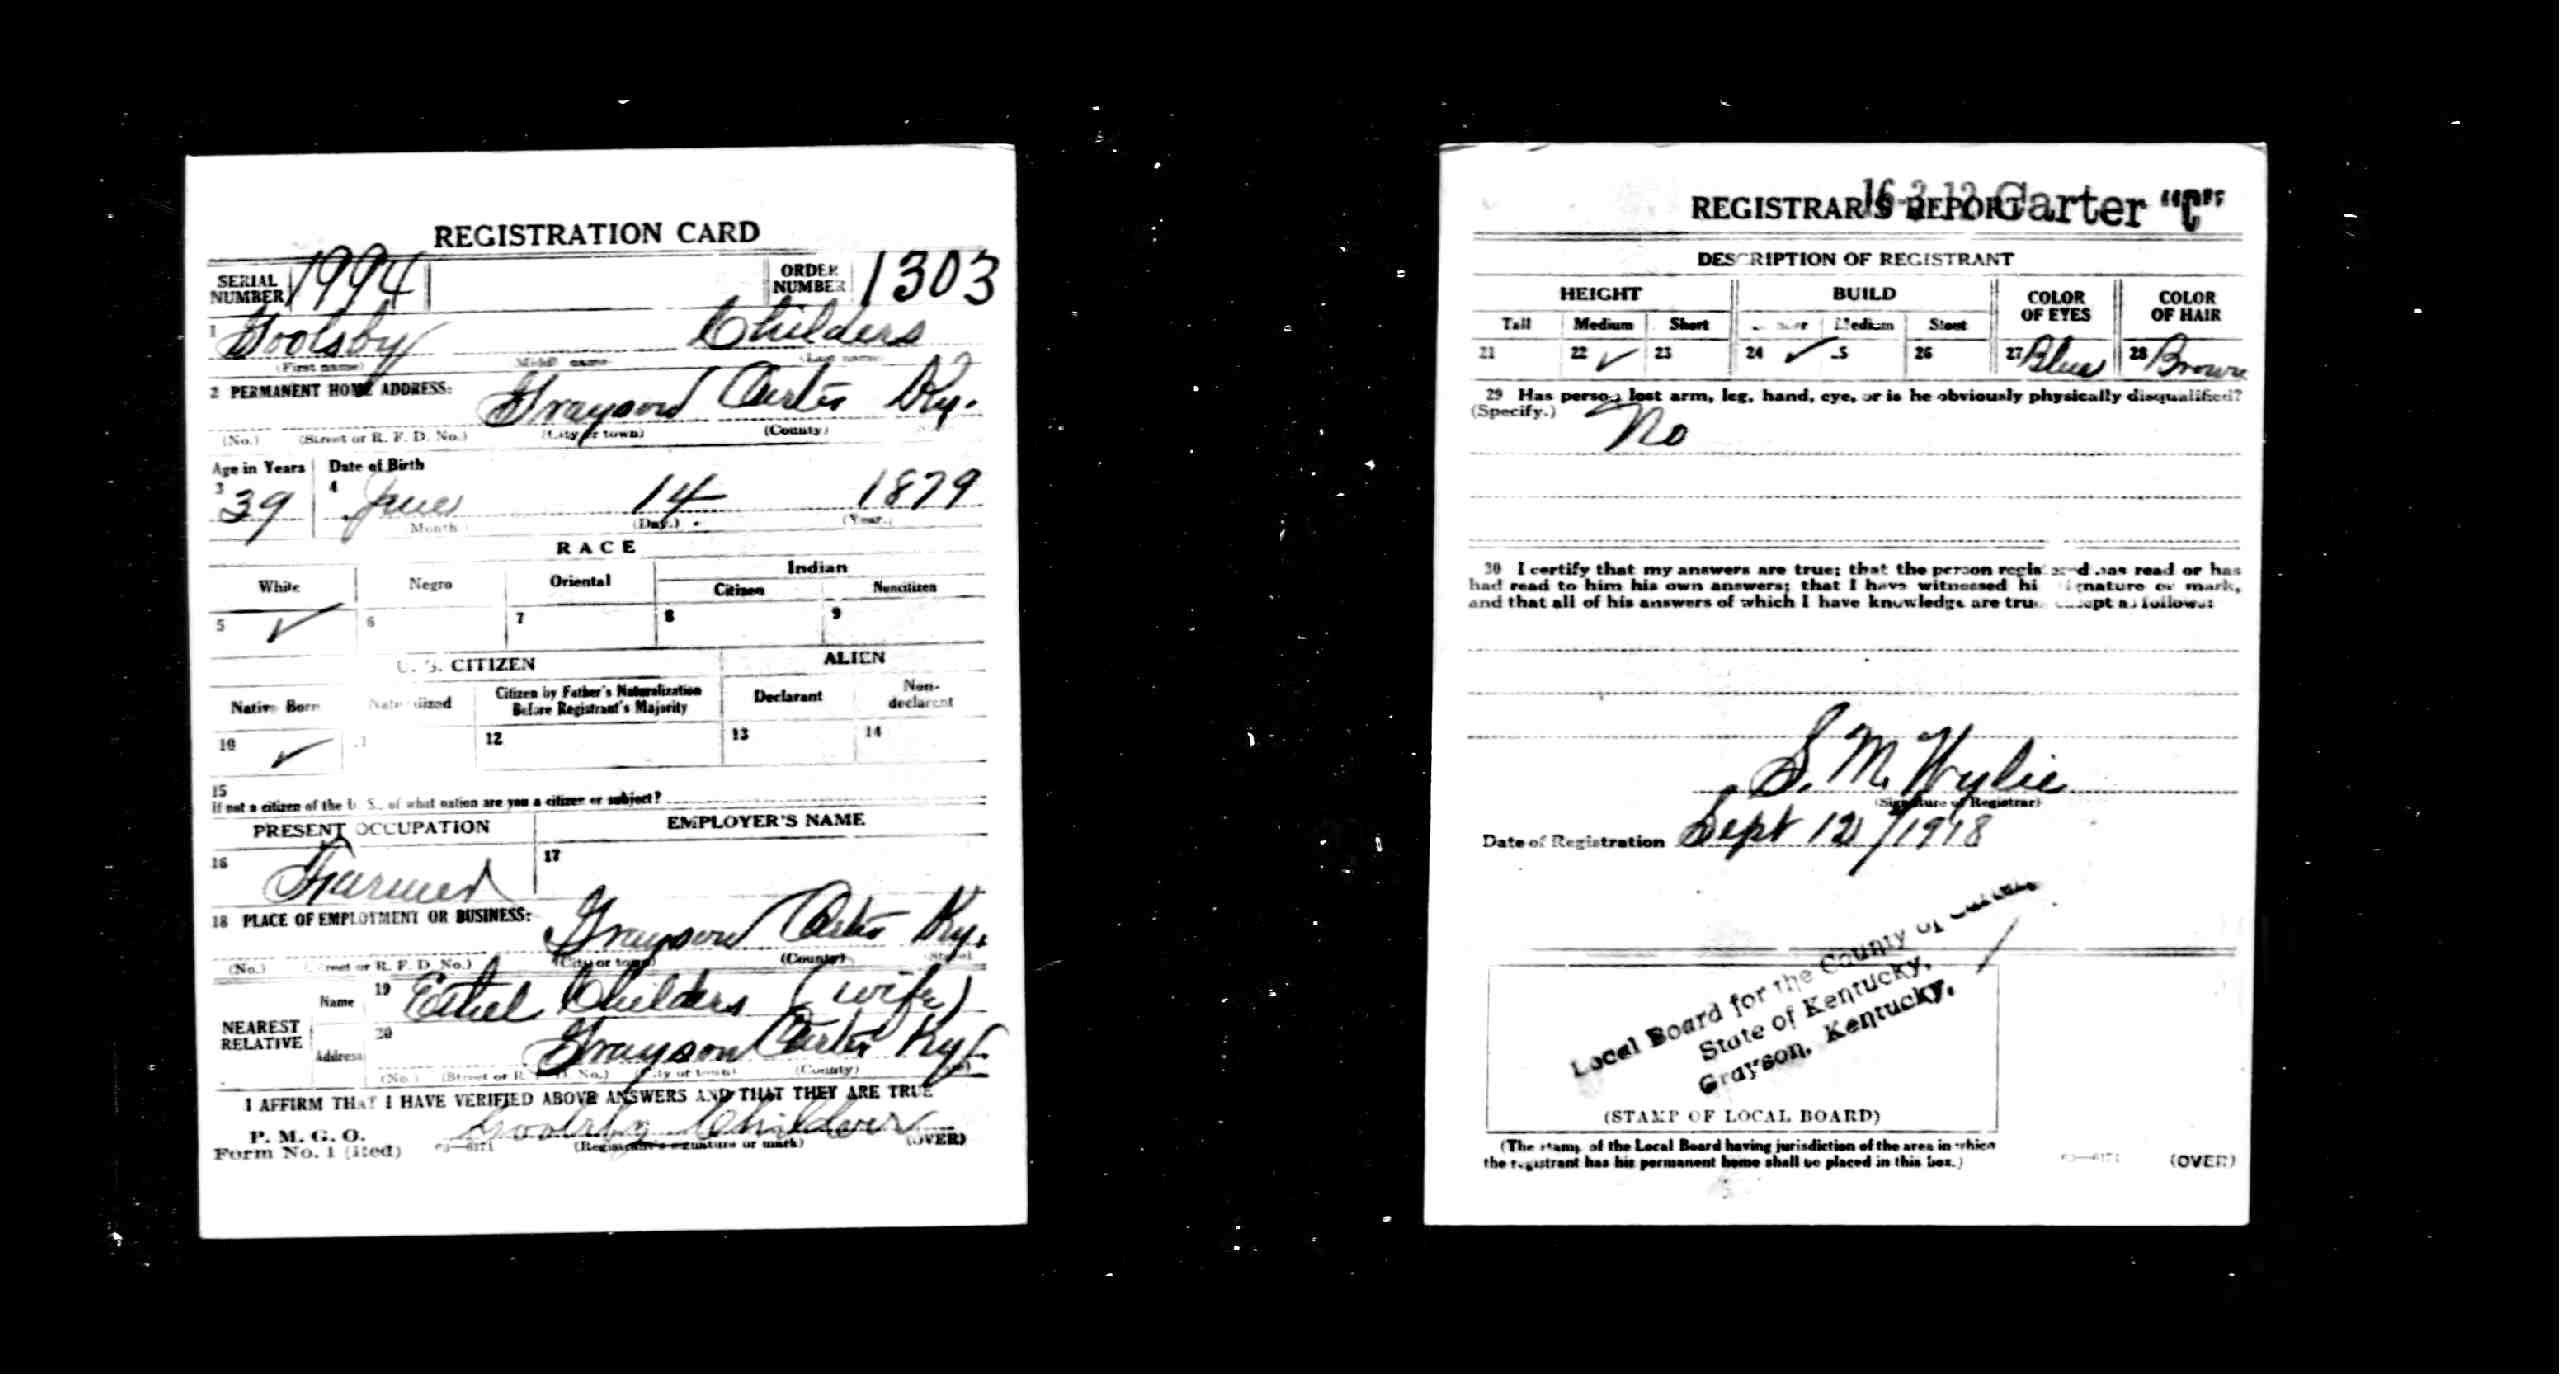 REGISTRATION CARD
SERIAL NUMBER 1994 ORDER NUMBER 1303
1 Goolsby Childers
(First name) Middle name (Last name)
2 PERMANENT HOME ADDRESS: Grayson Carter Ky.
(No.) (Street or R. F. D. No.) (City or town) (County)
Age in Years Date of Birth
3 39 4 June 14 1879
Month (Day.) (Year.)
RACE
White Negro Oriental Indian
Citizen Noncitizen
5 ✓ 6 7 8 9
U. S. CITIZEN ALIEN
Native Born Naturalized Citizen by Father's Naturalization Before Registrant's Majority Declarant Non-declarant
10 ✓ 12 13 14
15
If not a citizen of the U. S., of what nation are you a citizen or subject?
PRESENT OCCUPATION EMPLOYER'S NAME
16 Farmer 17
18 PLACE OF EMPLOYMENT OR BUSINESS: Grayson Carter Ky.
(No.) (Street or R. F. D. No.) (City or town) (County) (State)
NEAREST RELATIVE
Name 19 Ethel Childers (wife)
Address 20 Grayson Carter Ky.
(No.) (Street or R. F. D. No.) (City or town) (County)
I AFFIRM THAT I HAVE VERIFIED ABOVE ANSWERS AND THAT THEY ARE TRUE
P. M. G. O.
Form No. 1 Goolsby Childers
(Registrant's signature or mark) (OVER)
REGISTRAR'S REPORT
16-2-12 Carter "C"
DESCRIPTION OF REGISTRANT
HEIGHT BUILD COLOR OF EYES COLOR OF HAIR
Tall Medium Short Medium Stout
21 22 ✓ 23 24 ✓ 26 27 Blue 28 Brown
29 Has person lost arm, leg, hand, eye, or is he obviously physically disqualified?
(Specify.) No
30 I certify that my answers are true; that the person registered has read or has
had read to him his own answers; that I have witnessed his signature or mark,
and that all of his answers of which I have knowledge are true, except as follows:
S. M. Wylie
(Signature of Registrar)
Date of Registration Sept 12/1918
Local Board for the County of Carter,
State of Kentucky,
Grayson, Kentucky.
(STAMP OF LOCAL BOARD)
(The stamp of the Local Board having jurisdiction of the area in which
the registrant has his permanent home shall be placed in this box.)
(OVER)